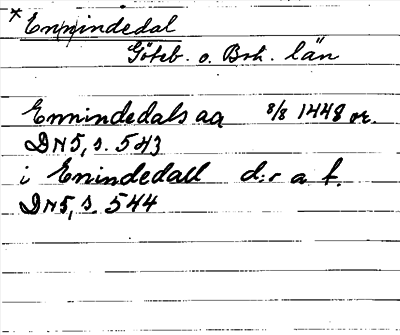 * Ennindedal
Göteb. o. Boh. län
Ennindedals aa 8/8 1448 or.
DN 5, s. 543
i Enindedall d:r a f.
DN 5, s. 544